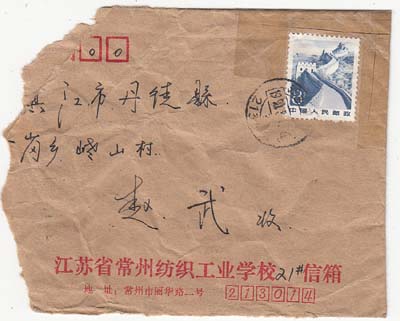 00
江市丹徒縣
岗乡嶝山村
赵武收
中国人民邮政
江苏省常州纺织工业学校21#信箱
地 址:常州市丽华路二号 213014